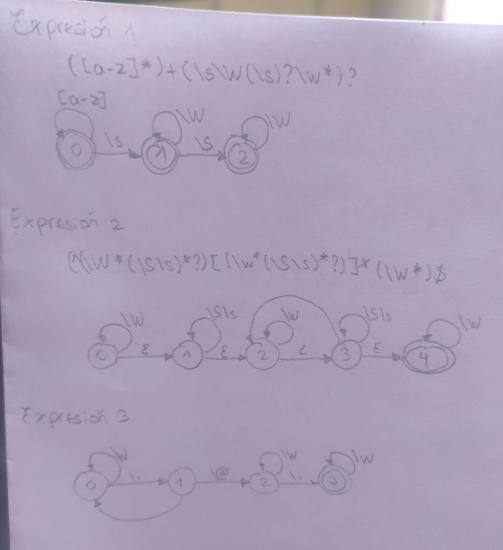 Expresión 1
([a-z]*)+(\s\W(\s)?\w*)?
[a-z] \W \W
0 \s 1 \s 2
Expresión 2
(^\W*(\S\s)*?)[(\w*(\S\s)*?)]*(\w*)$
\W \S\s \w \S\s \W
0 ε 1 ε 2 ε 3 ε 4
Expresión 3
\w \w \w
0 \. 1 \@ 2 \. 3